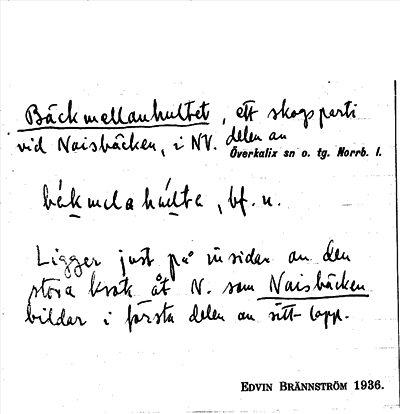 Bäckmellanhultet, ett skogsparti
vid Naisbäcken, i NV. delen av
Överkalix sn o. tg. Norrb. l.
bákmelahúlta, bf. n.
Ligger just på insidan av den
stora krok åt N. som Naisbäcken
bildar i första delen av sitt lopp.
EDVIN BRÄNNSTRÖM 1936.